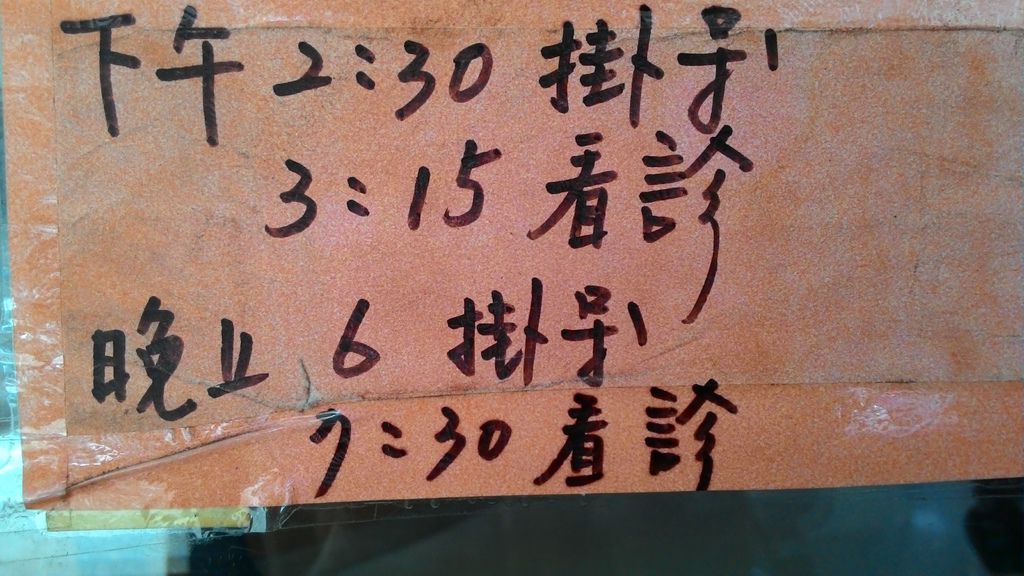 下午 2:30 掛号
3:15 看診
晚上 6 掛号
7:30 看診